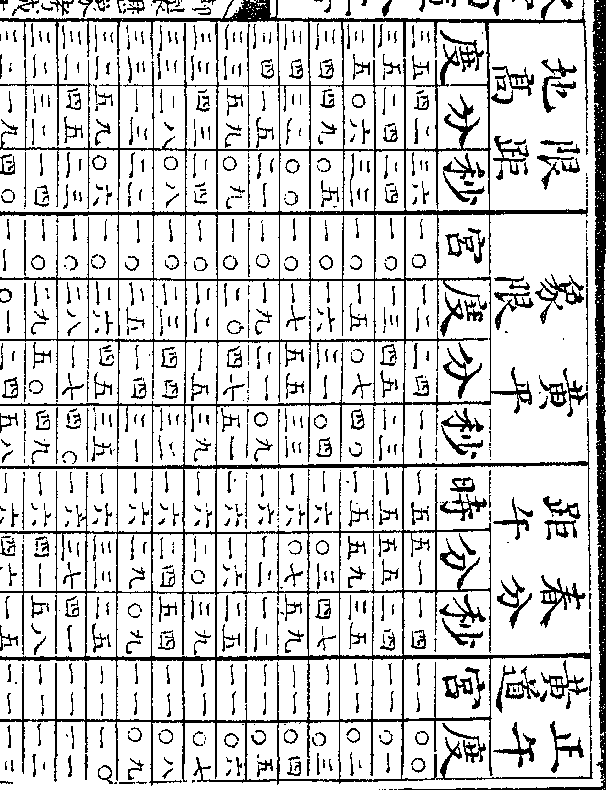 限距地高 黄平象限 春分距午 正午黄道
度 分 秒 宫 度 分 秒 時 分 秒 宫 度
三五 四二 三六 一〇 一二 二四 一一 一五 五一 一四 一一 〇〇
三五 二四 二四 一〇 一三 四五 二三 一五 五五 二四 一一 〇一
三五 〇六 三三 一〇 一五 〇七 四〇 一五 五九 三五 一一 〇二
三四 四九 〇五 一〇 一六 三一 〇四 一六 〇三 四七 一一 〇三
三四 三二 〇〇 一〇 一七 五五 三三 一六 〇七 五九 一一 〇四
三四 一五 二一 一〇 一九 二一 〇九 一六 一二 一二 一一 〇五
三三 五九 〇九 一〇 二〇 四七 五一 一六 一六 二五 一一 〇六
三三 四三 二四 一〇 二二 一五 三九 一六 二〇 三九 一一 〇七
三三 二八 〇八 一〇 二三 四四 三二 一六 二四 五四 一一 〇八
三三 一三 二二 一〇 二五 一四 三一 一六 二九 〇九 一一 〇九
三二 五九 〇六 一〇 二六 四五 三五 一六 三三 二五 一一 一〇
三二 四五 二三 一〇 二八 一七 四〇 一六 三七 四一 一一 一一
三二 三二 一四 一〇 二九 五〇 四九 一六 四一 五八 一一 一二
三二 一九 四〇 一一 〇一 二四 五八 一六 四六 一五 一一 一三